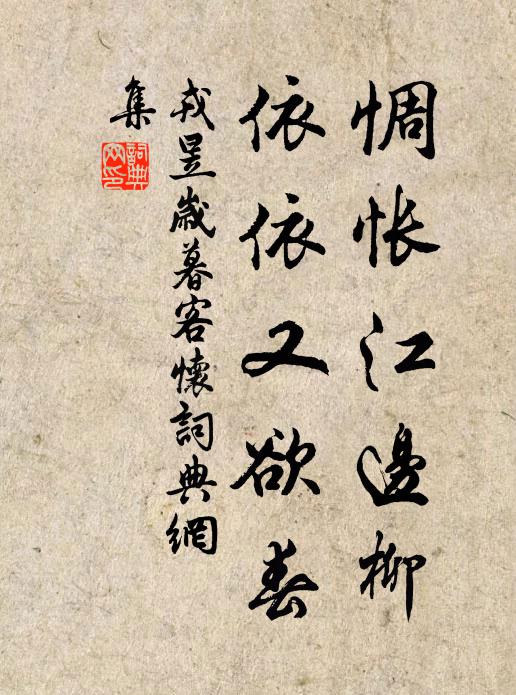 惆悵江邊柳
依依又欲春
戎昱歲暮客懷詞典網
集
詞典網印